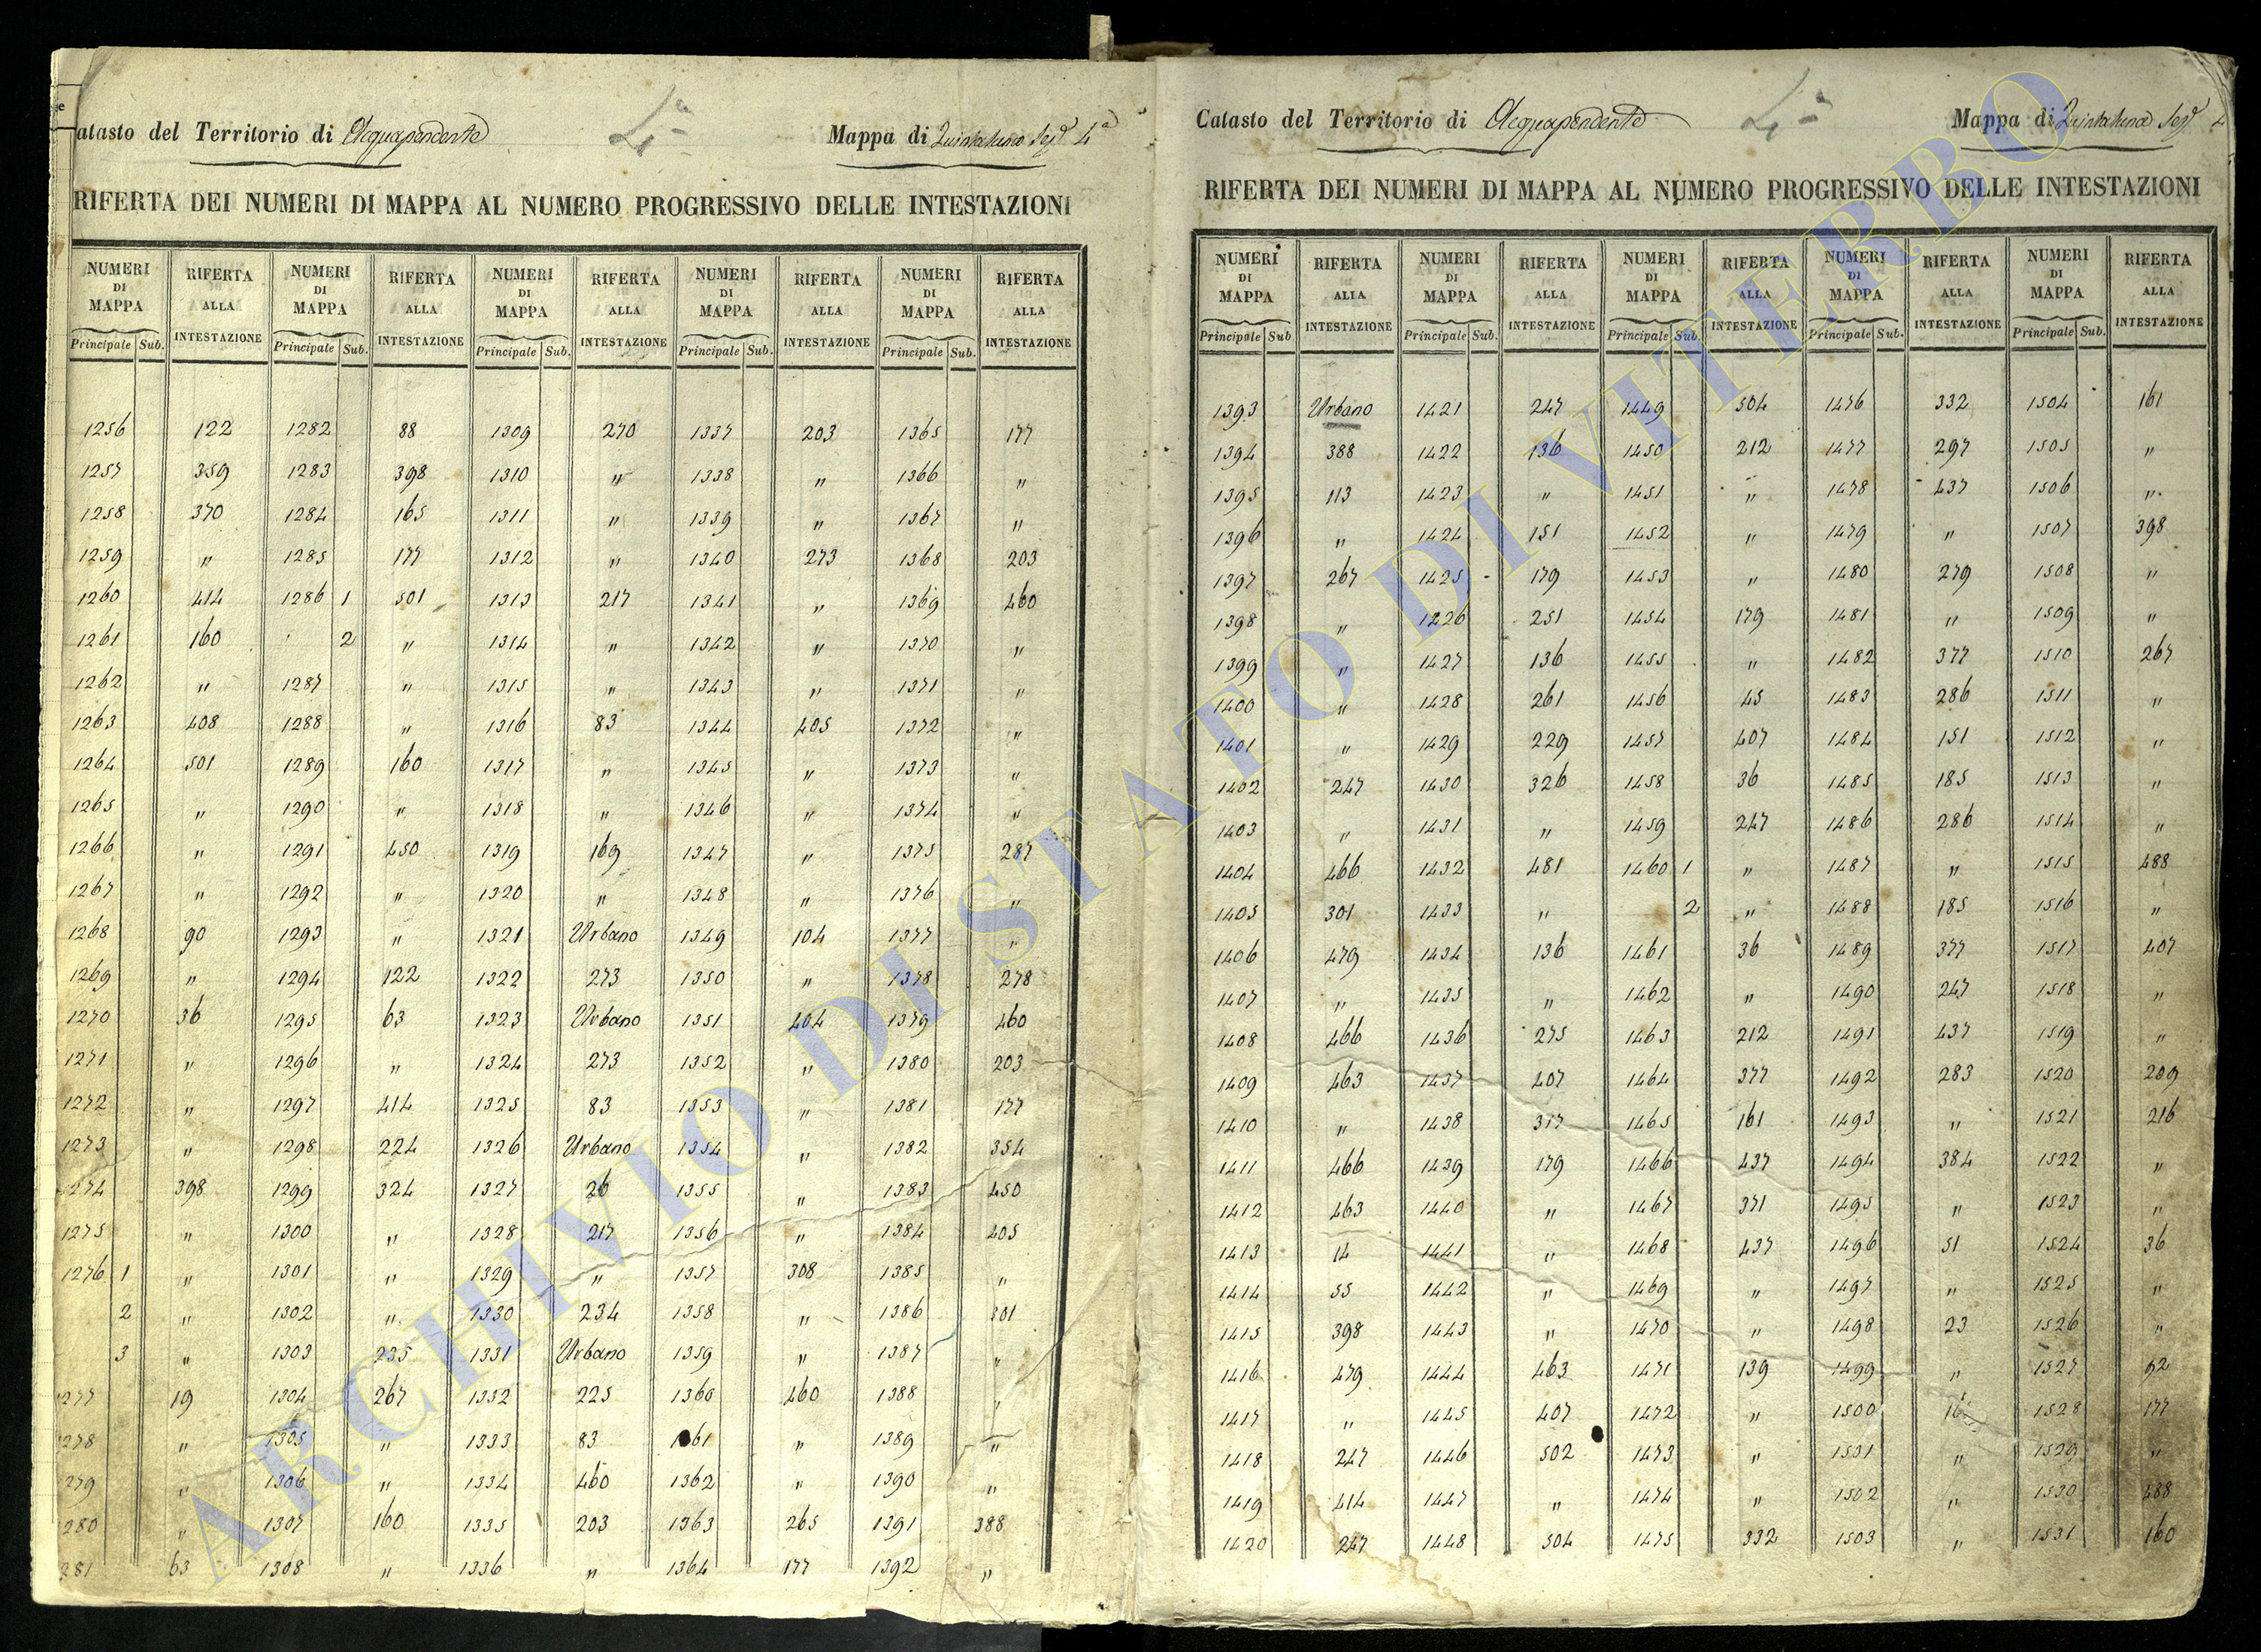 Catasto del Territorio di Acquapendente 4ª Mappa di Quintaluna Sezᵉ 4ª
RIFERTA DEI NUMERI DI MAPPA AL NUMERO PROGRESSIVO DELLE INTESTAZIONI
NUMERI DI MAPPA RIFERTA ALLA INTESTAZIONE NUMERI DI MAPPA RIFERTA ALLA INTESTAZIONE NUMERI DI MAPPA RIFERTA ALLA INTESTAZIONE NUMERI DI MAPPA RIFERTA ALLA INTESTAZIONE NUMERI DI MAPPA RIFERTA ALLA INTESTAZIONE
Principale Sub. Principale Sub. Principale Sub. Principale Sub. Principale Sub.
1256 122 1282 88 1309 270 1337 203 1365 177
1257 359 1283 398 1310 " 1338 " 1366 "
1258 370 1284 165 1311 " 1339 " 1367 "
1259 " 1285 177 1312 " 1340 273 1368 203
1260 414 1286 1 501 1313 217 1341 " 1369 460
1261 160 2 " 1314 " 1342 " 1370 "
1262 " 1287 " 1315 " 1343 " 1371 "
1263 408 1288 " 1316 83 1344 405 1372 "
1264 501 1289 160 1317 " 1345 " 1373 "
1265 " 1290 " 1318 " 1346 " 1374 "
1266 " 1291 450 1319 169 1347 " 1375 287
1267 " 1292 " 1320 " 1348 " 1376 "
1268 90 1293 " 1321 Urbano 1349 104 1377 "
1269 " 1294 122 1322 273 1350 " 1378 278
1270 36 1295 63 1323 Urbano 1351 404 1379 460
1271 " 1296 " 1324 273 1352 " 1380 203
1272 " 1297 414 1325 83 1353 " 1381 177
1273 " 1298 224 1326 Urbano 1354 " 1382 354
1274 398 1299 324 1327 26 1355 " 1383 450
1275 " 1300 " 1328 217 1356 " 1384 405
1276 1 " 1301 " 1329 " 1357 308 1385 "
2 " 1302 " 1330 234 1358 " 1386 301
3 " 1303 235 1331 Urbano 1359 " 1387 "
1277 19 1304 267 1332 225 1360 460 1388 "
1278 " 1305 " 1333 83 1361 " 1389 "
279 " 1306 " 1334 460 1362 " 1390 "
280 " 1307 160 1335 203 1363 265 1391 388
281 63 1308 " 1336 " 1364 177 1392 "
Catasto del Territorio di Acquapendente 4ª Mappa di Quintaluna Sezᵉ
RIFERTA DEI NUMERI DI MAPPA AL NUMERO PROGRESSIVO DELLE INTESTAZIONI
NUMERI DI MAPPA RIFERTA ALLA INTESTAZIONE NUMERI DI MAPPA RIFERTA ALLA INTESTAZIONE NUMERI DI MAPPA RIFERTA ALLA INTESTAZIONE NUMERI DI MAPPA RIFERTA ALLA INTESTAZIONE NUMERI DI MAPPA RIFERTA ALLA INTESTAZIONE
Principale Sub Principale Sub. Principale Sub. Principale Sub. Principale Sub.
1393 Urbano 1421 247 1449 504 1476 332 1504 161
1394 388 1422 136 1450 212 1477 297 1505 "
1395 113 1423 " 1451 " 1478 437 1506 "
1396 " 1424 151 1452 " 1479 " 1507 398
1397 267 1425 179 1453 " 1480 279 1508 "
1398 " 1226 251 1454 179 1481 " 1509 "
1399 " 1427 136 1455 " 1482 377 1510 267
1400 " 1428 261 1456 45 1483 286 1511 "
1401 " 1429 229 1457 407 1484 151 1512 "
1402 247 1430 326 1458 36 1485 185 1513 "
1403 " 1431 " 1459 247 1486 286 1514 "
1404 466 1432 481 1460 1 " 1487 " 1515 488
1405 301 1433 " 2 " 1488 185 1516 "
1406 479 1434 136 1461 36 1489 377 1517 407
1407 " 1435 " 1462 " 1490 247 1518 "
1408 466 1436 275 1463 212 1491 437 1519 "
1409 463 1437 407 1464 377 1492 283 1520 209
1410 " 1438 377 1465 161 1493 " 1521 216
1411 466 1439 179 1466 437 1494 384 1522 "
1412 463 1440 " 1467 371 1495 " 1523 "
1413 14 1441 " 1468 437 1496 51 1524 36
1414 55 1442 " 1469 " 1497 " 1525 "
1415 398 1443 " 1470 " 1498 23 1526 "
1416 479 1444 463 1471 139 1499 " 1527 62
1417 " 1445 407 1472 " 1500 1528 177
1418 247 1446 502 1473 " 1501 " 1529 "
1419 414 1447 " 1474 " 1502 " 1530 488
1420 247 1448 504 1475 332 1503 " 1531 160
ARCHIVIO DI STATO DI VITERBO